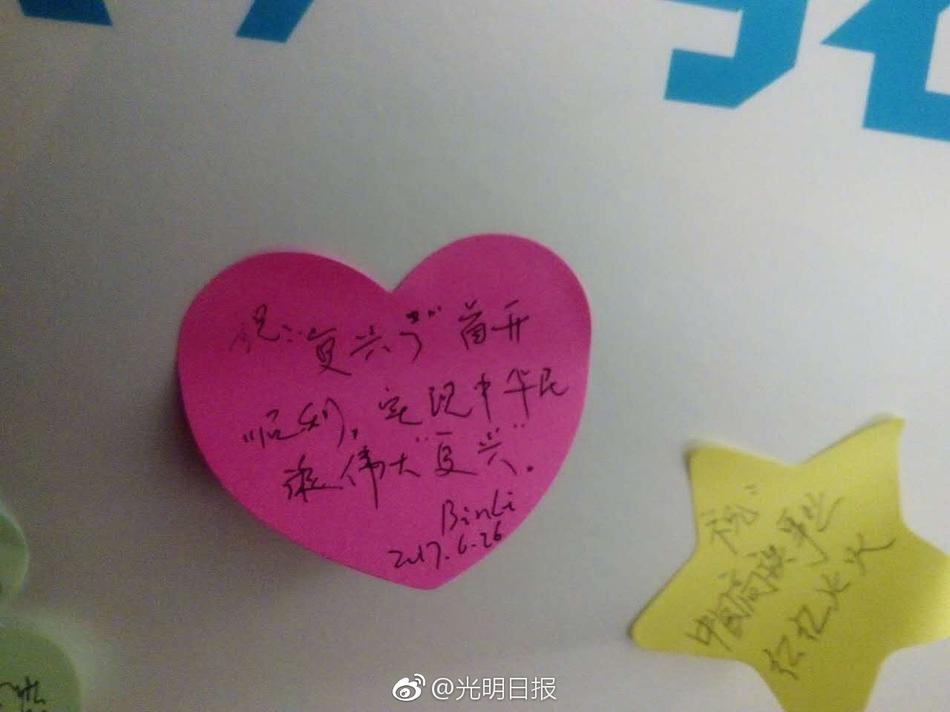 祝:"复兴号"首开
顺利,实现中华民
族伟大"复兴"。
BinLi
2017.6.26
祝:
中国高铁事业
红红火火
@光明日报